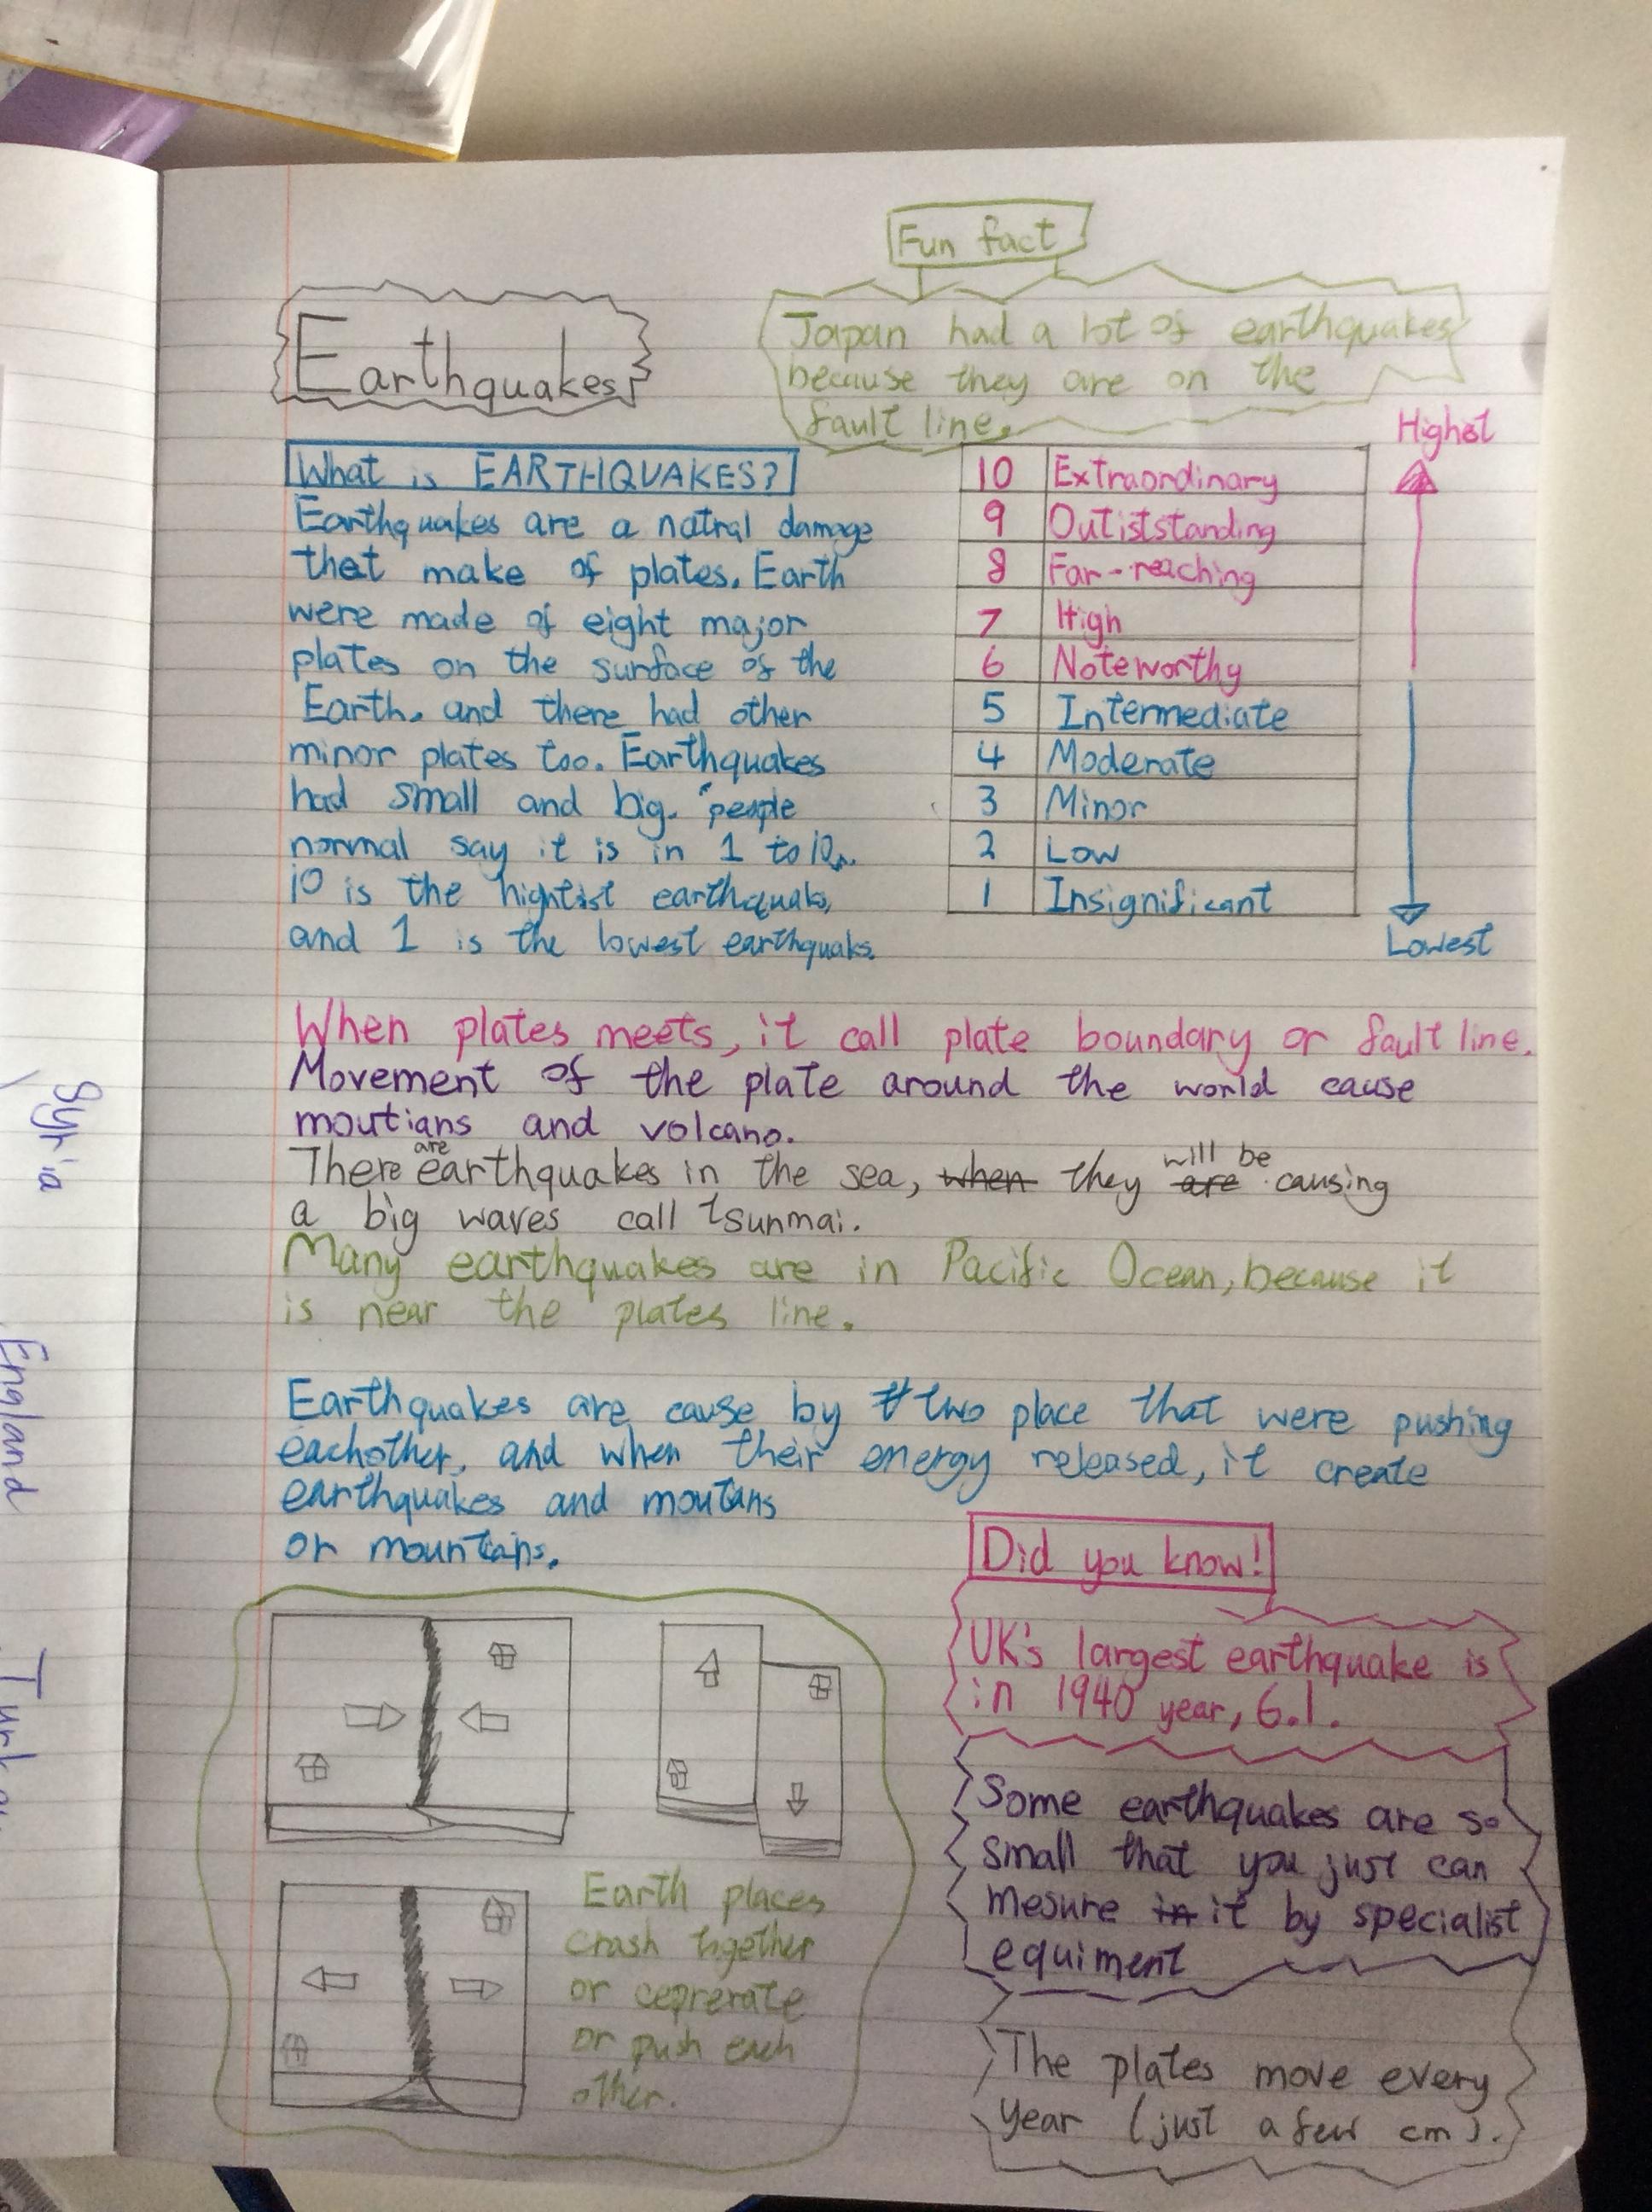 Fun fact
Japan had a lot of earthquakes
because they are on the
fault line.
Earthquakes
What is EARTHQUAKES?
Earthquakes are a natral damage
that make of plates. Earth
were made of eight major
plates on the surface of the
Earth. and there had other
minor plates too. Earthquakes
had small and big. people
normal say it is in 1 to 10.
10 is the hightist earthquake,
and 1 is the lowest earthquake.
Highest
10 Extraordinary
9 Outiststanding
8 Far-reaching
7 High
6 Noteworthy
5 Intermediate
4 Moderate
3 Minor
2 Low
1 Insignificant
Lowest
When plates meets, it call plate boundary or fault line.
Movement of the plate around the world cause
moutians and volcano.
There are earthquakes in the sea, when they are will be causing
a big waves call tsunmai.
Many earthquakes are in Pacific Ocean, because it
is near the plates line.
Earthquakes are cause by two place that were pushing
eachother, and when their energy released, it create
earthquakes and moutans
or mountains.
Earth places
crash together
or ceprerate
or push each
other.
Did you know!
UK's largest earthquake is
in 1940 year, 6.1.
Some earthquakes are so
small that you just can
mesure in it by specialist
equiment
The plates move every
year (just a few cm).
Syria
England